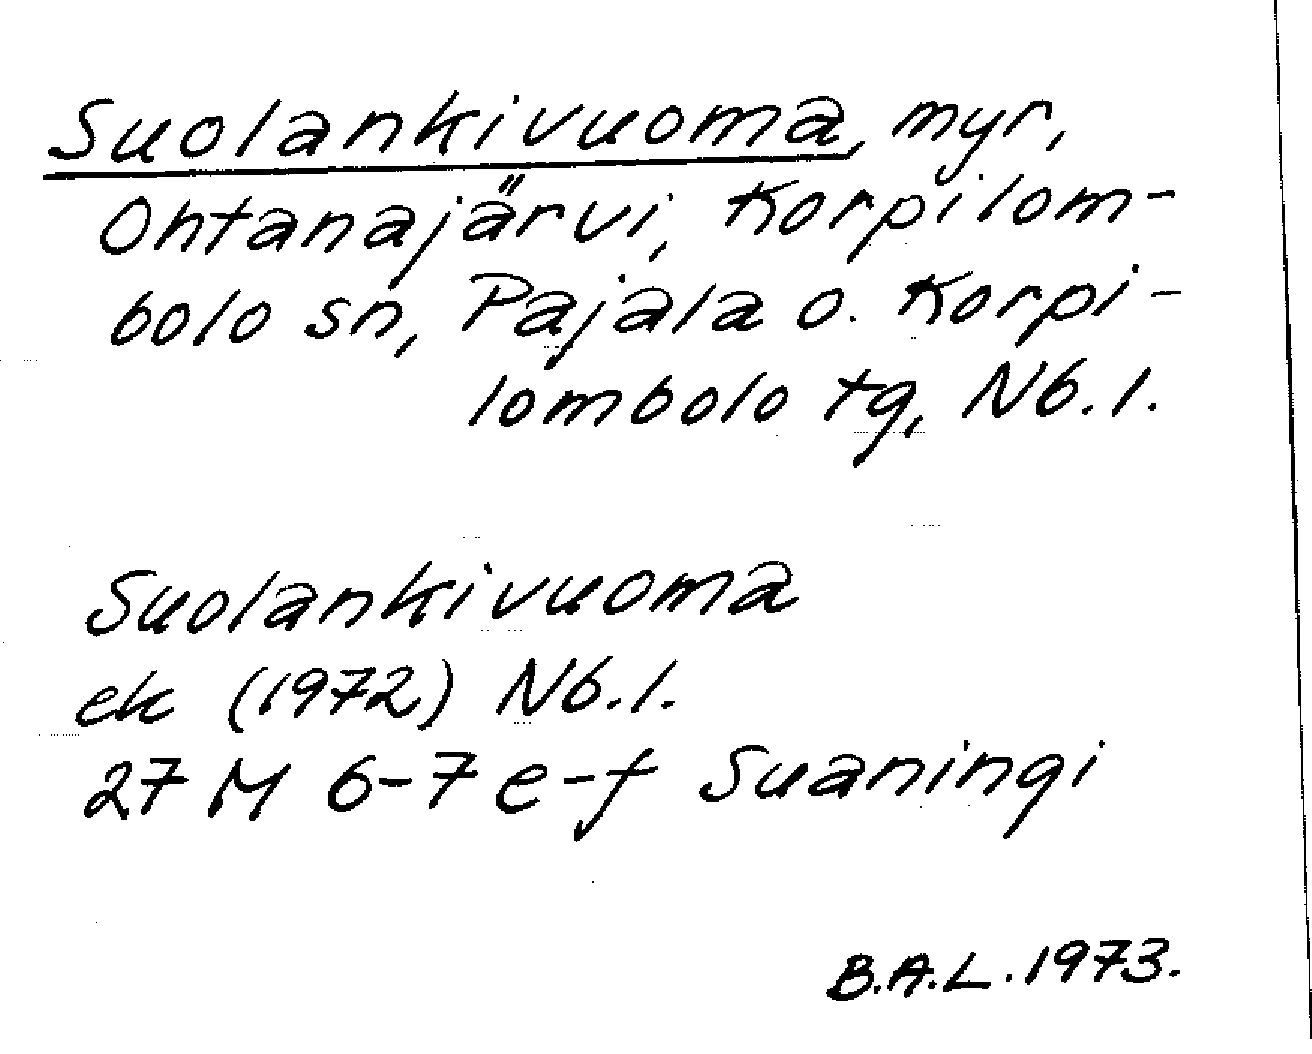 Suolankivuoma, myr,
Ohtanajärvi, Korpilom-
bolo sn, Pajala o. Korpi-
lombolo tg, Nb. l.
Suolankivuoma
ek (1972) Nb. l.
27 M 6-7 e-f Suaningi
B.A.L. 1973.